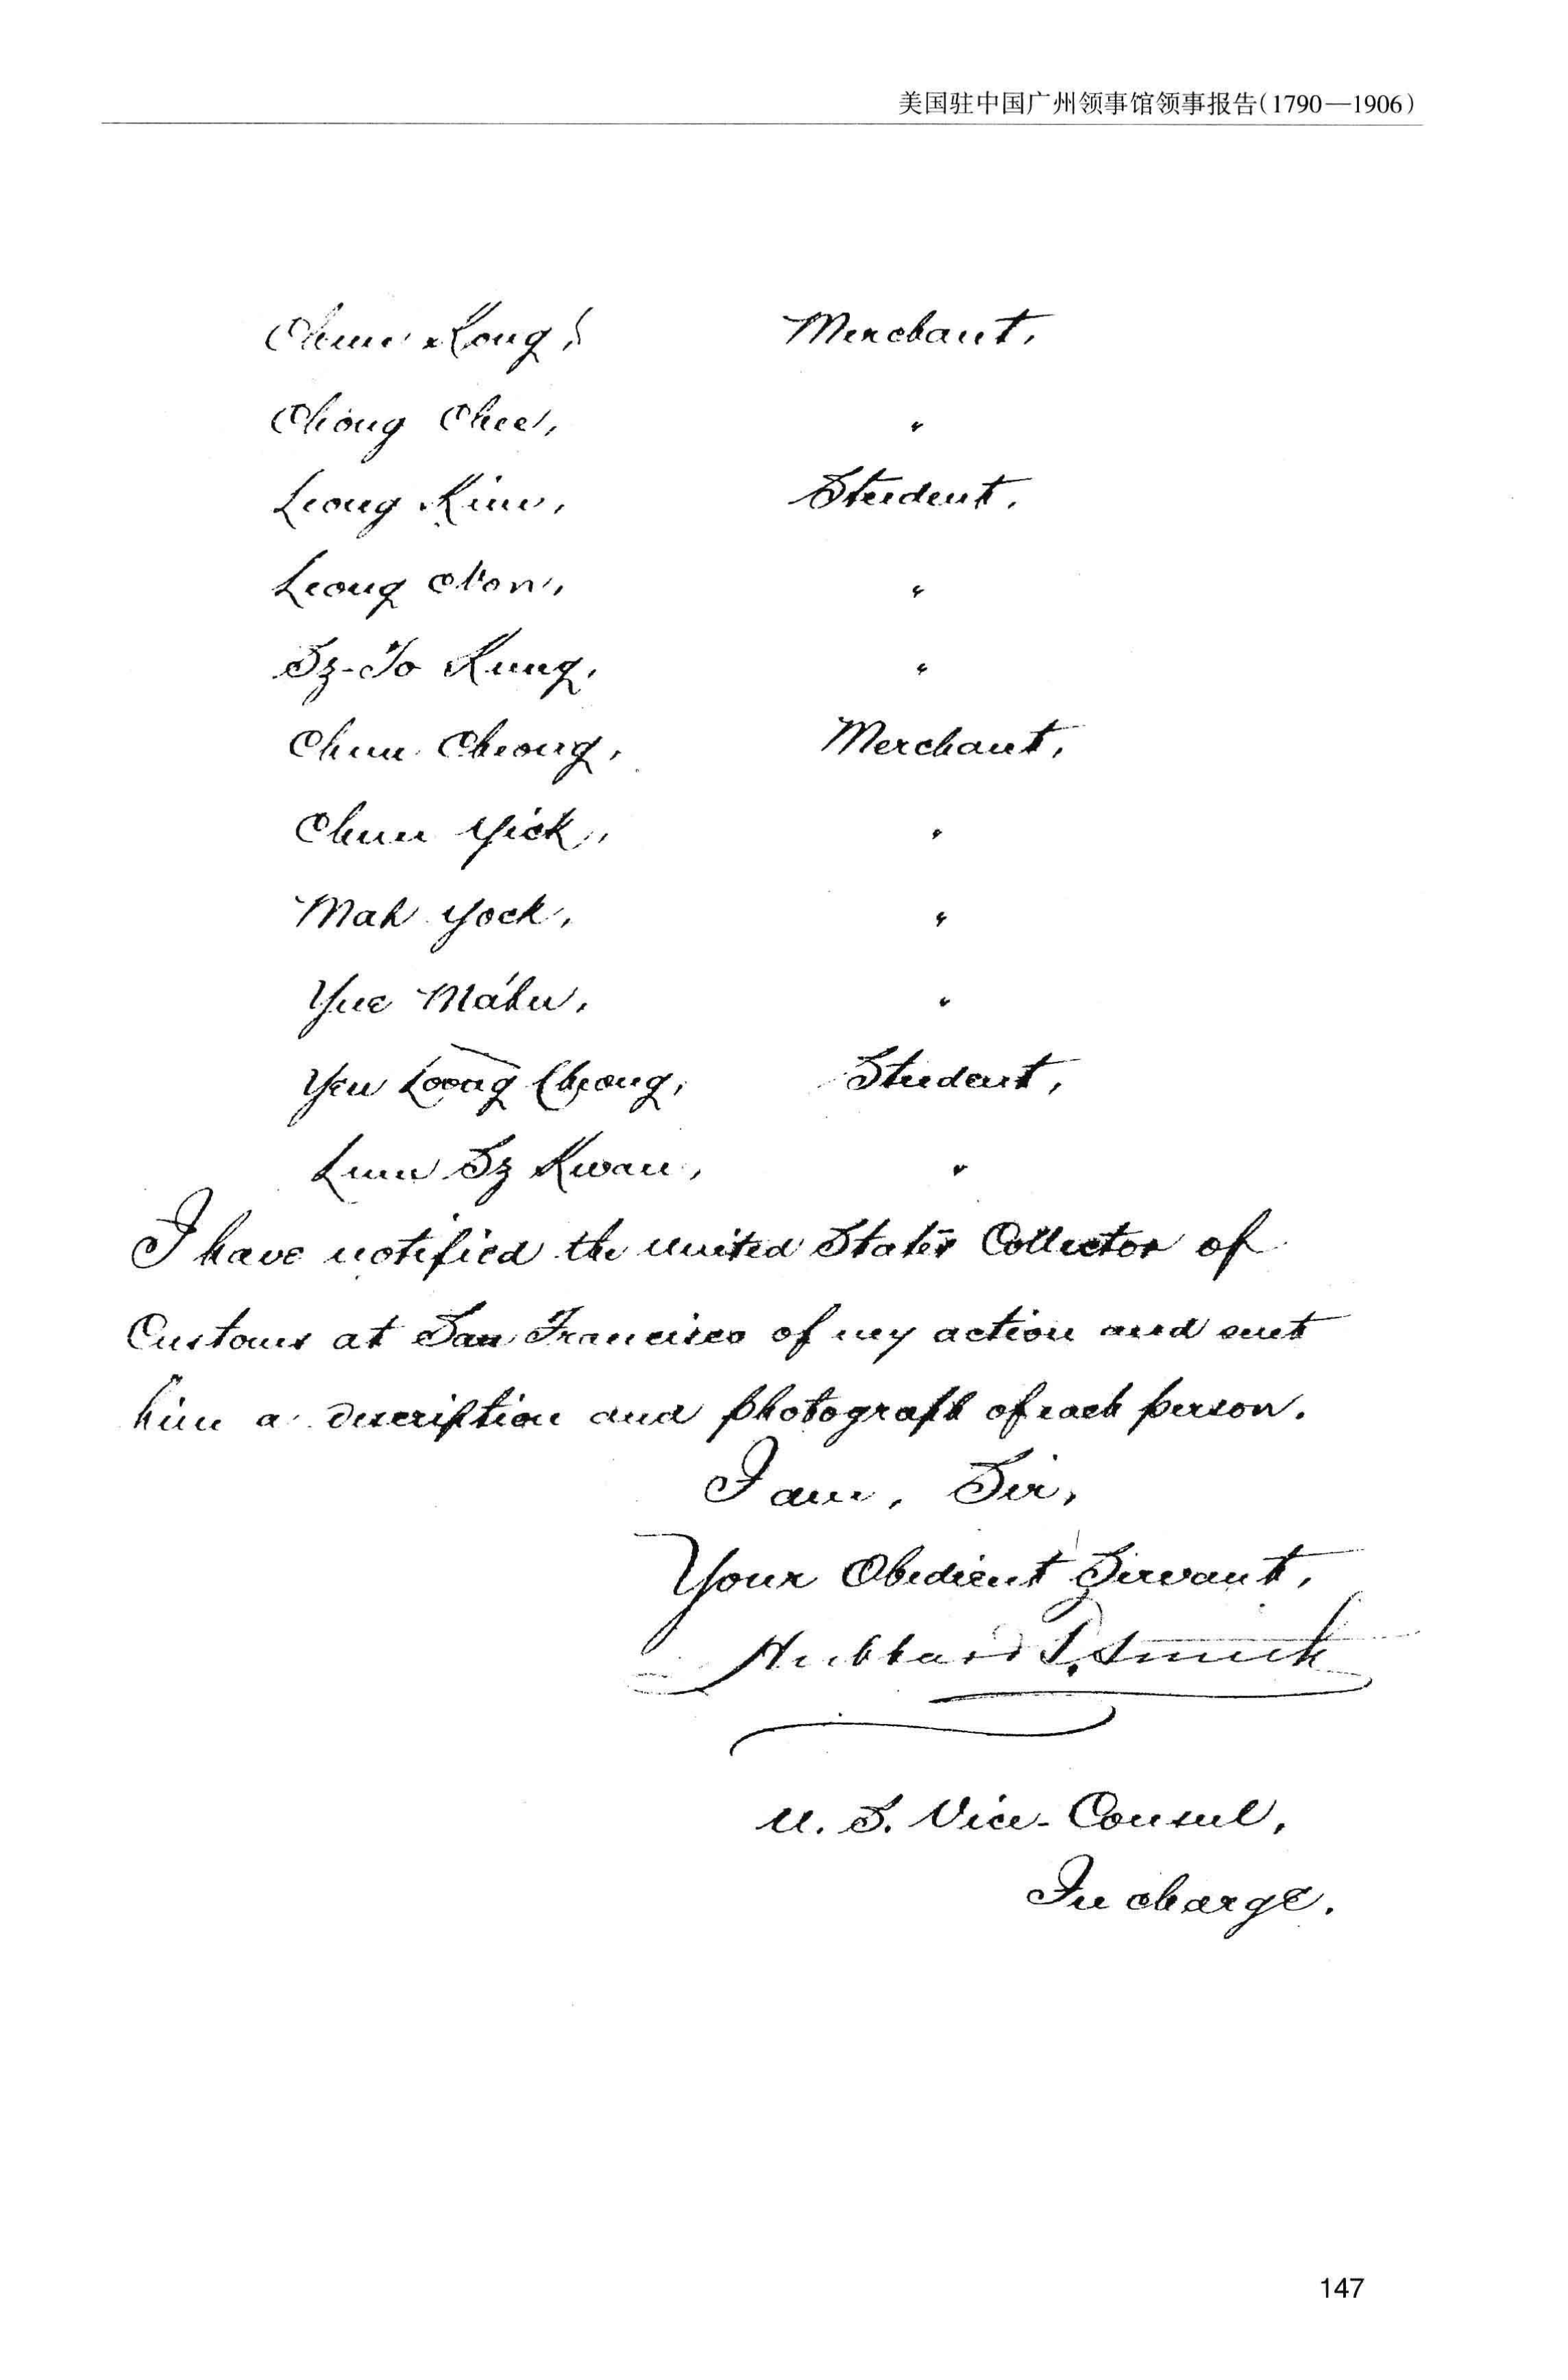 美国驻中国广州领事馆领事报告(1790—1906)
Chun Kong, Merchant,
Chong Chee, "
Leong Kim, Student,
Leong Non, "
Sz-To Kung, "
Chun Cheong, Merchant,
Chun Yick, "
Mah Yock, "
Yue Mahn, "
Yeu Loong Cheong, Student,
Lum Sz Kwan, "
I have notified the United States Collector of
Customs at San Francisco of my action and sent
him a description and photograph of each person.
I am, Sir,
Your Obedient Servant,
Hubbard T. Smith
U. S. Vice-Consul,
In charge.
147